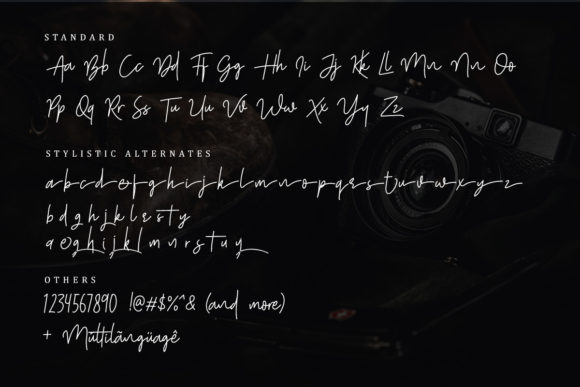 STANDARD
Aa Bb Cc Dd Ff Gg Hh Ii Jj Kk Ll Mm Nn Oo
Pp Qq Rr Ss Tu Uu Vv Ww Xx Yy Zz
STYLISTIC ALTERNATES
a b c d e f g h i j k l m n o p q r s t u v w x y z
b d g h j k l r s t y
a e g h i j k l m n r s t u y
OTHERS
1234567890 !@#$%^& (and more)
+ Múltilãngüagê